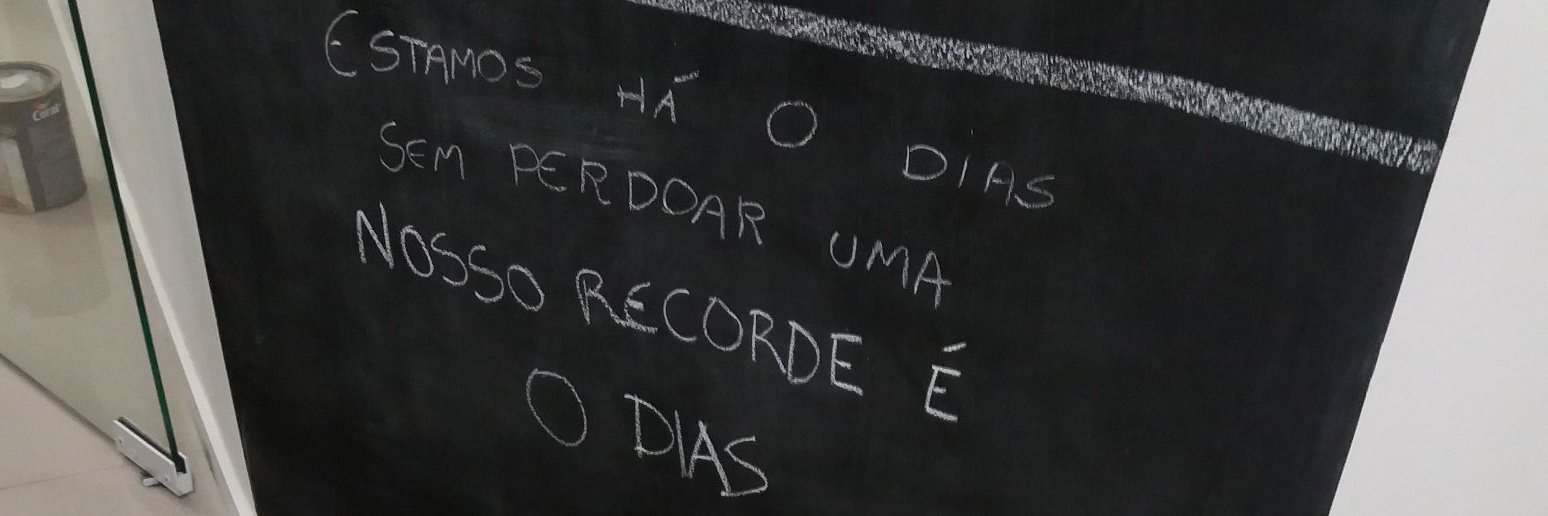 ESTAMOS HÁ 0 DIAS
SEM PERDOAR UMA
NOSSO RECORDE É
0 DIAS
Coral